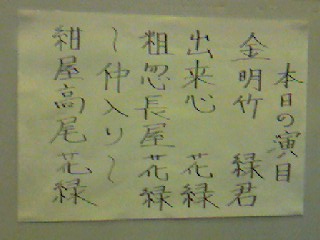 本日の演目
金明竹 緑君
出来心 花緑
粗忽長屋 花緑
〜仲入り〜
紺屋高尾 花緑